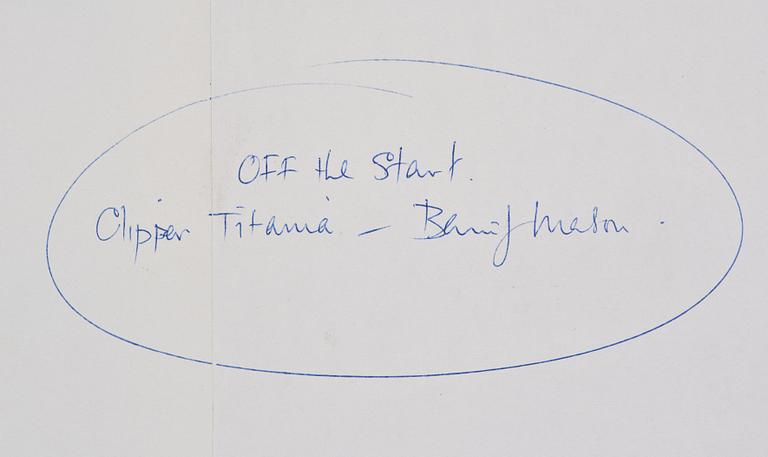 OFF the Start.
Clipper Titania – Barry J Mason.